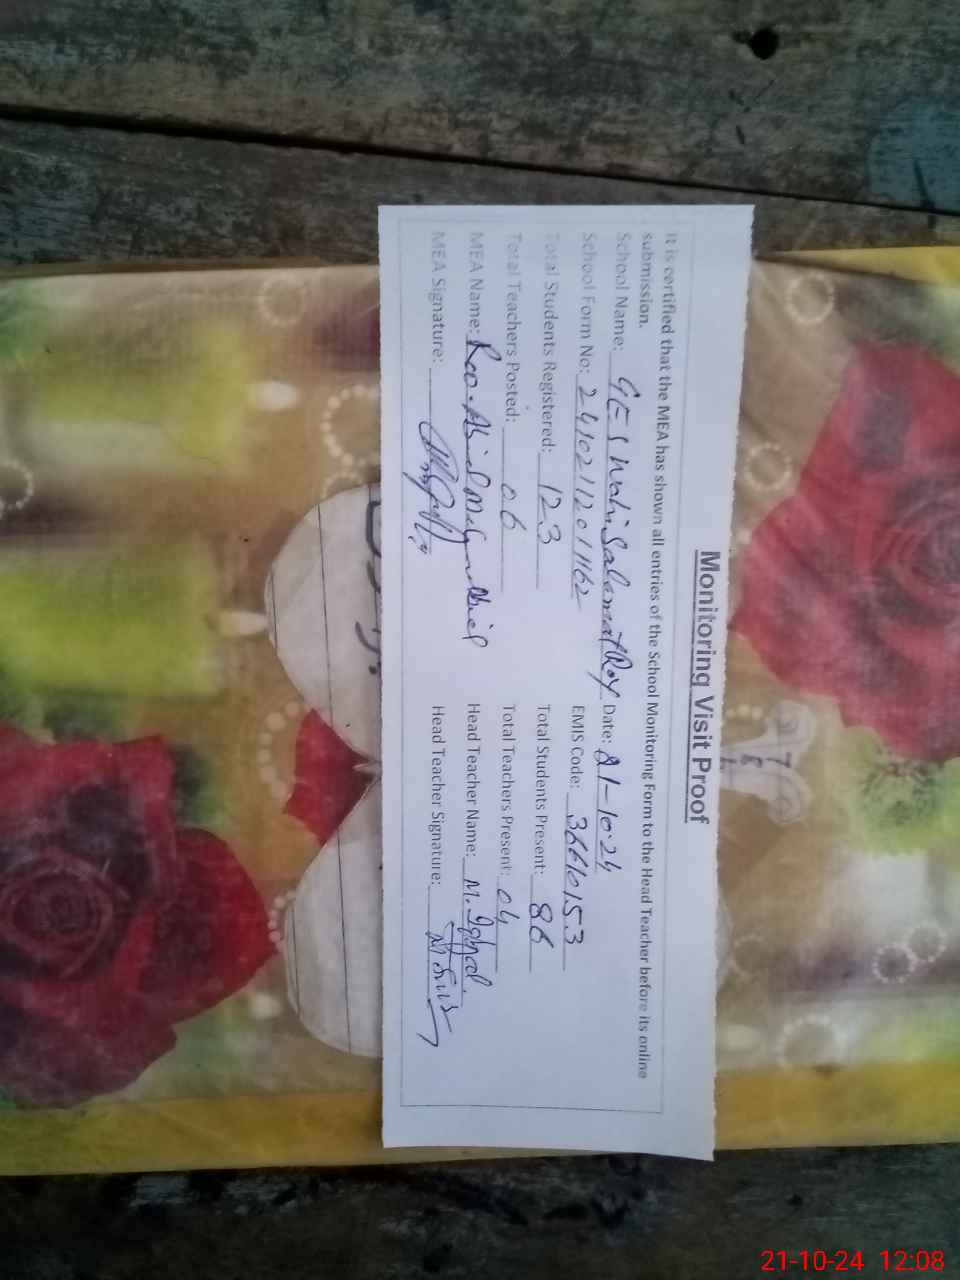 Monitoring Visit Proof
It is certified that the MEA has shown all entries of the School Monitoring Form to the Head Teacher before its online
submission.
School Name: GES Wahi Salamat Ray Date: 21-10-24
School Form No: 2410211201162 EMIS Code: 36610153
Total Students Registered: 123 Total Students Present: 86
Total Teachers Posted: 06 Total Teachers Present: 04
MEA Name: Head Teacher Name: M. Iqbal
MEA Signature: Head Teacher Signature:
21-10-24 12:08